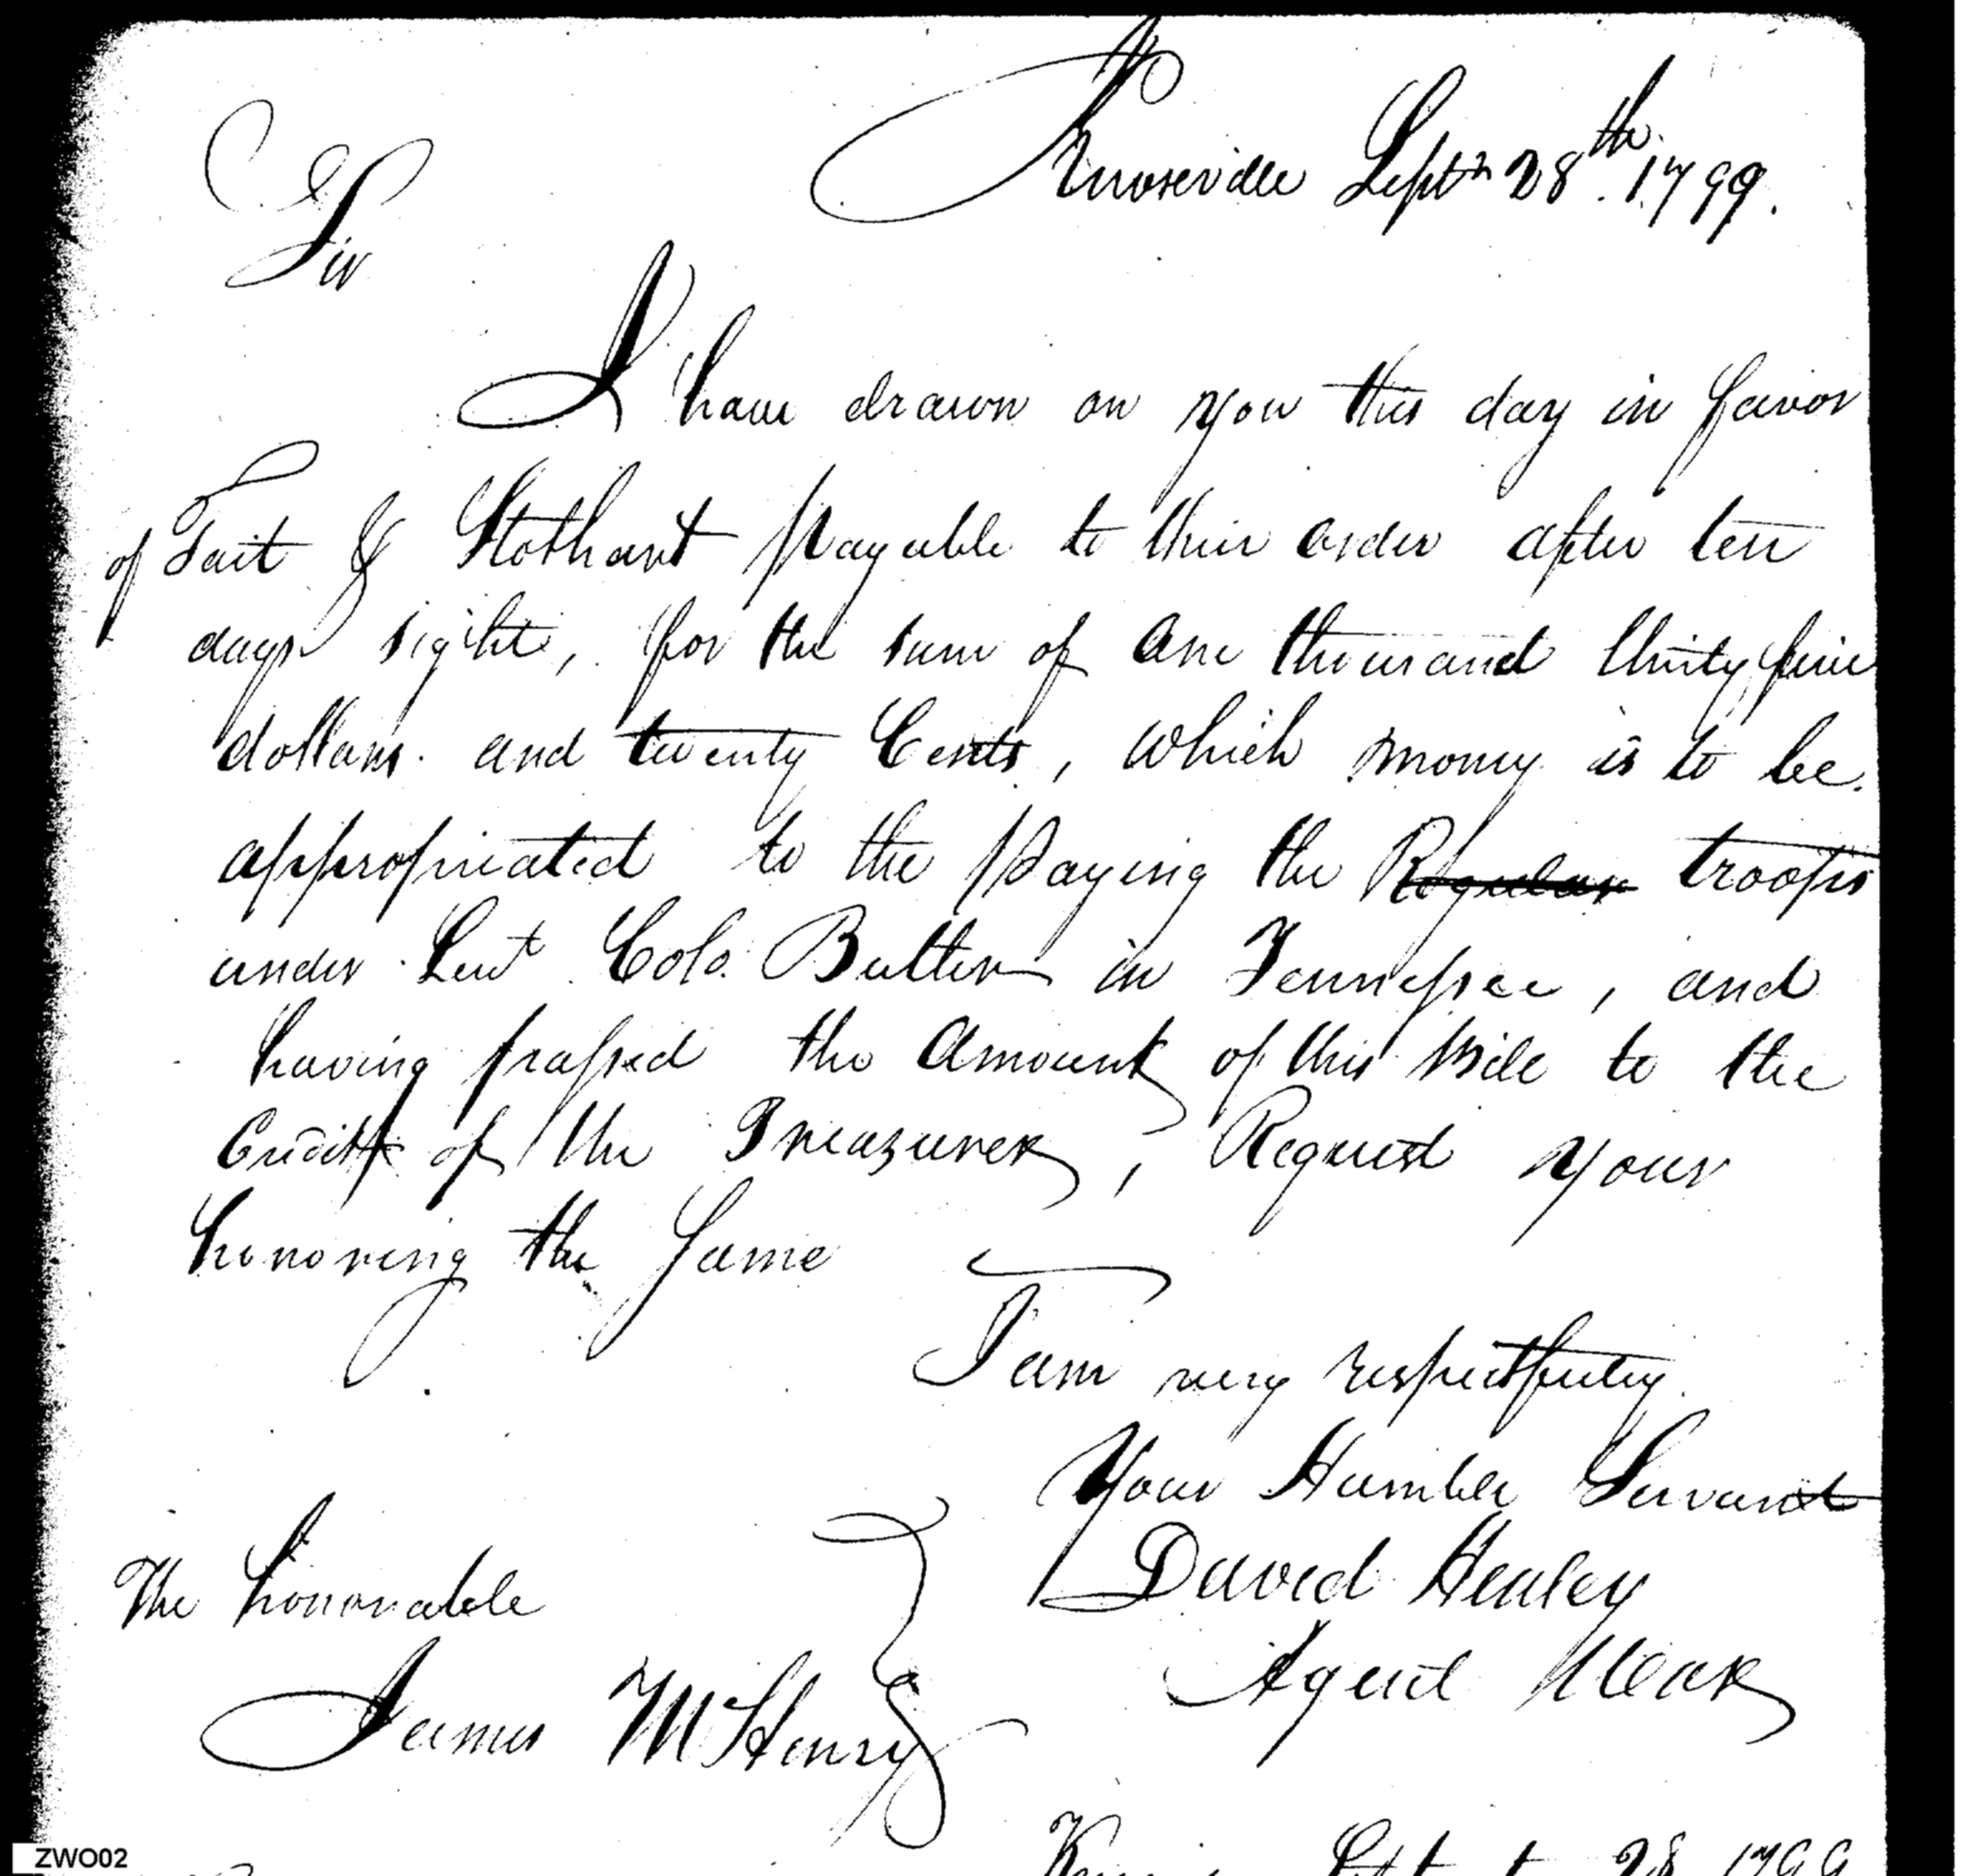 Knoxville Septr 28th. 1799.
Sir
I have drawn on you this day in favor
of Tait & Stothart payable to their order after ten
days sight, for the sum of One thousand thirty five
dollars. and twenty Cents, which money is to be
appropriated to the paying the Regular troops
under Leut Colo. Butler in Tennessee, and
having passed the Amount of this bill to the
Credit of the Treasurer, Request your
honoring the Same
I am very respectfully
Your Humble Servant
The honorable
David Henley
James McHenry
Agent War
28 1799
ZWO02